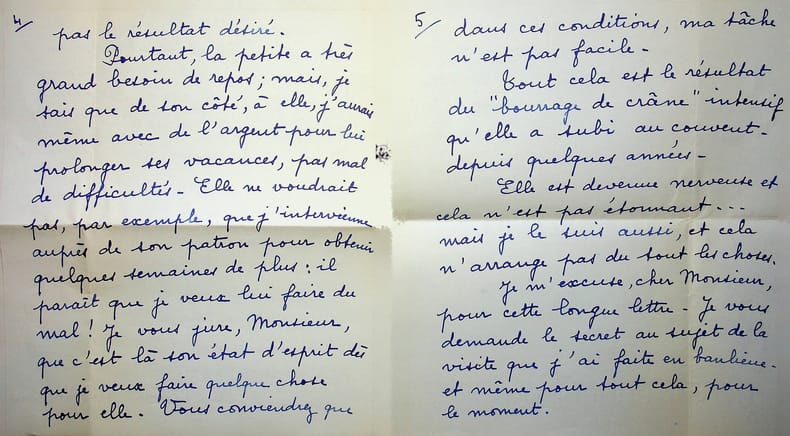 4/
pas le résultat désiré.
Pourtant, la petite a très
grand besoin de repos ; mais, je
sais que de son côté, à elle, j'aurais
même avec de l'argent pour lui
prolonger ses vacances, pas mal
de difficultés - Elle ne voudrait
pas, par exemple, que j'intervienne
auprès de son patron pour obtenir
quelques semaines de plus : il
paraît que je veux lui faire du
mal ! Je vous jure, Monsieur,
que c'est là son état d'esprit dès
que je veux faire quelque chose
pour elle. Vous conviendrez que
5/
dans ces conditions, ma tâche
n'est pas facile -
Tout cela est le résultat
du "bourrage de crâne" intensif
qu'elle a subi au couvent -
depuis quelques années -
Elle est devenue nerveuse et
cela n'est pas étonnant...
mais je le suis aussi, et cela
n'arrange pas du tout les choses.
Je m'excuse, cher Monsieur,
pour cette longue lettre - Je vous
demande le secret au sujet de la
visite que j'ai faite en banlieue -
et même pour tout cela, pour
le moment.